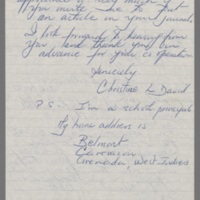 if
you write like to that
an article in your journal.
I look forward to hearing from
you, and thank you in
advance for your co-operation
Sincerely
Christine L David
P.S. I'm a school principal
My home address is
Belmont
Carriacou
Grenada, West Indies